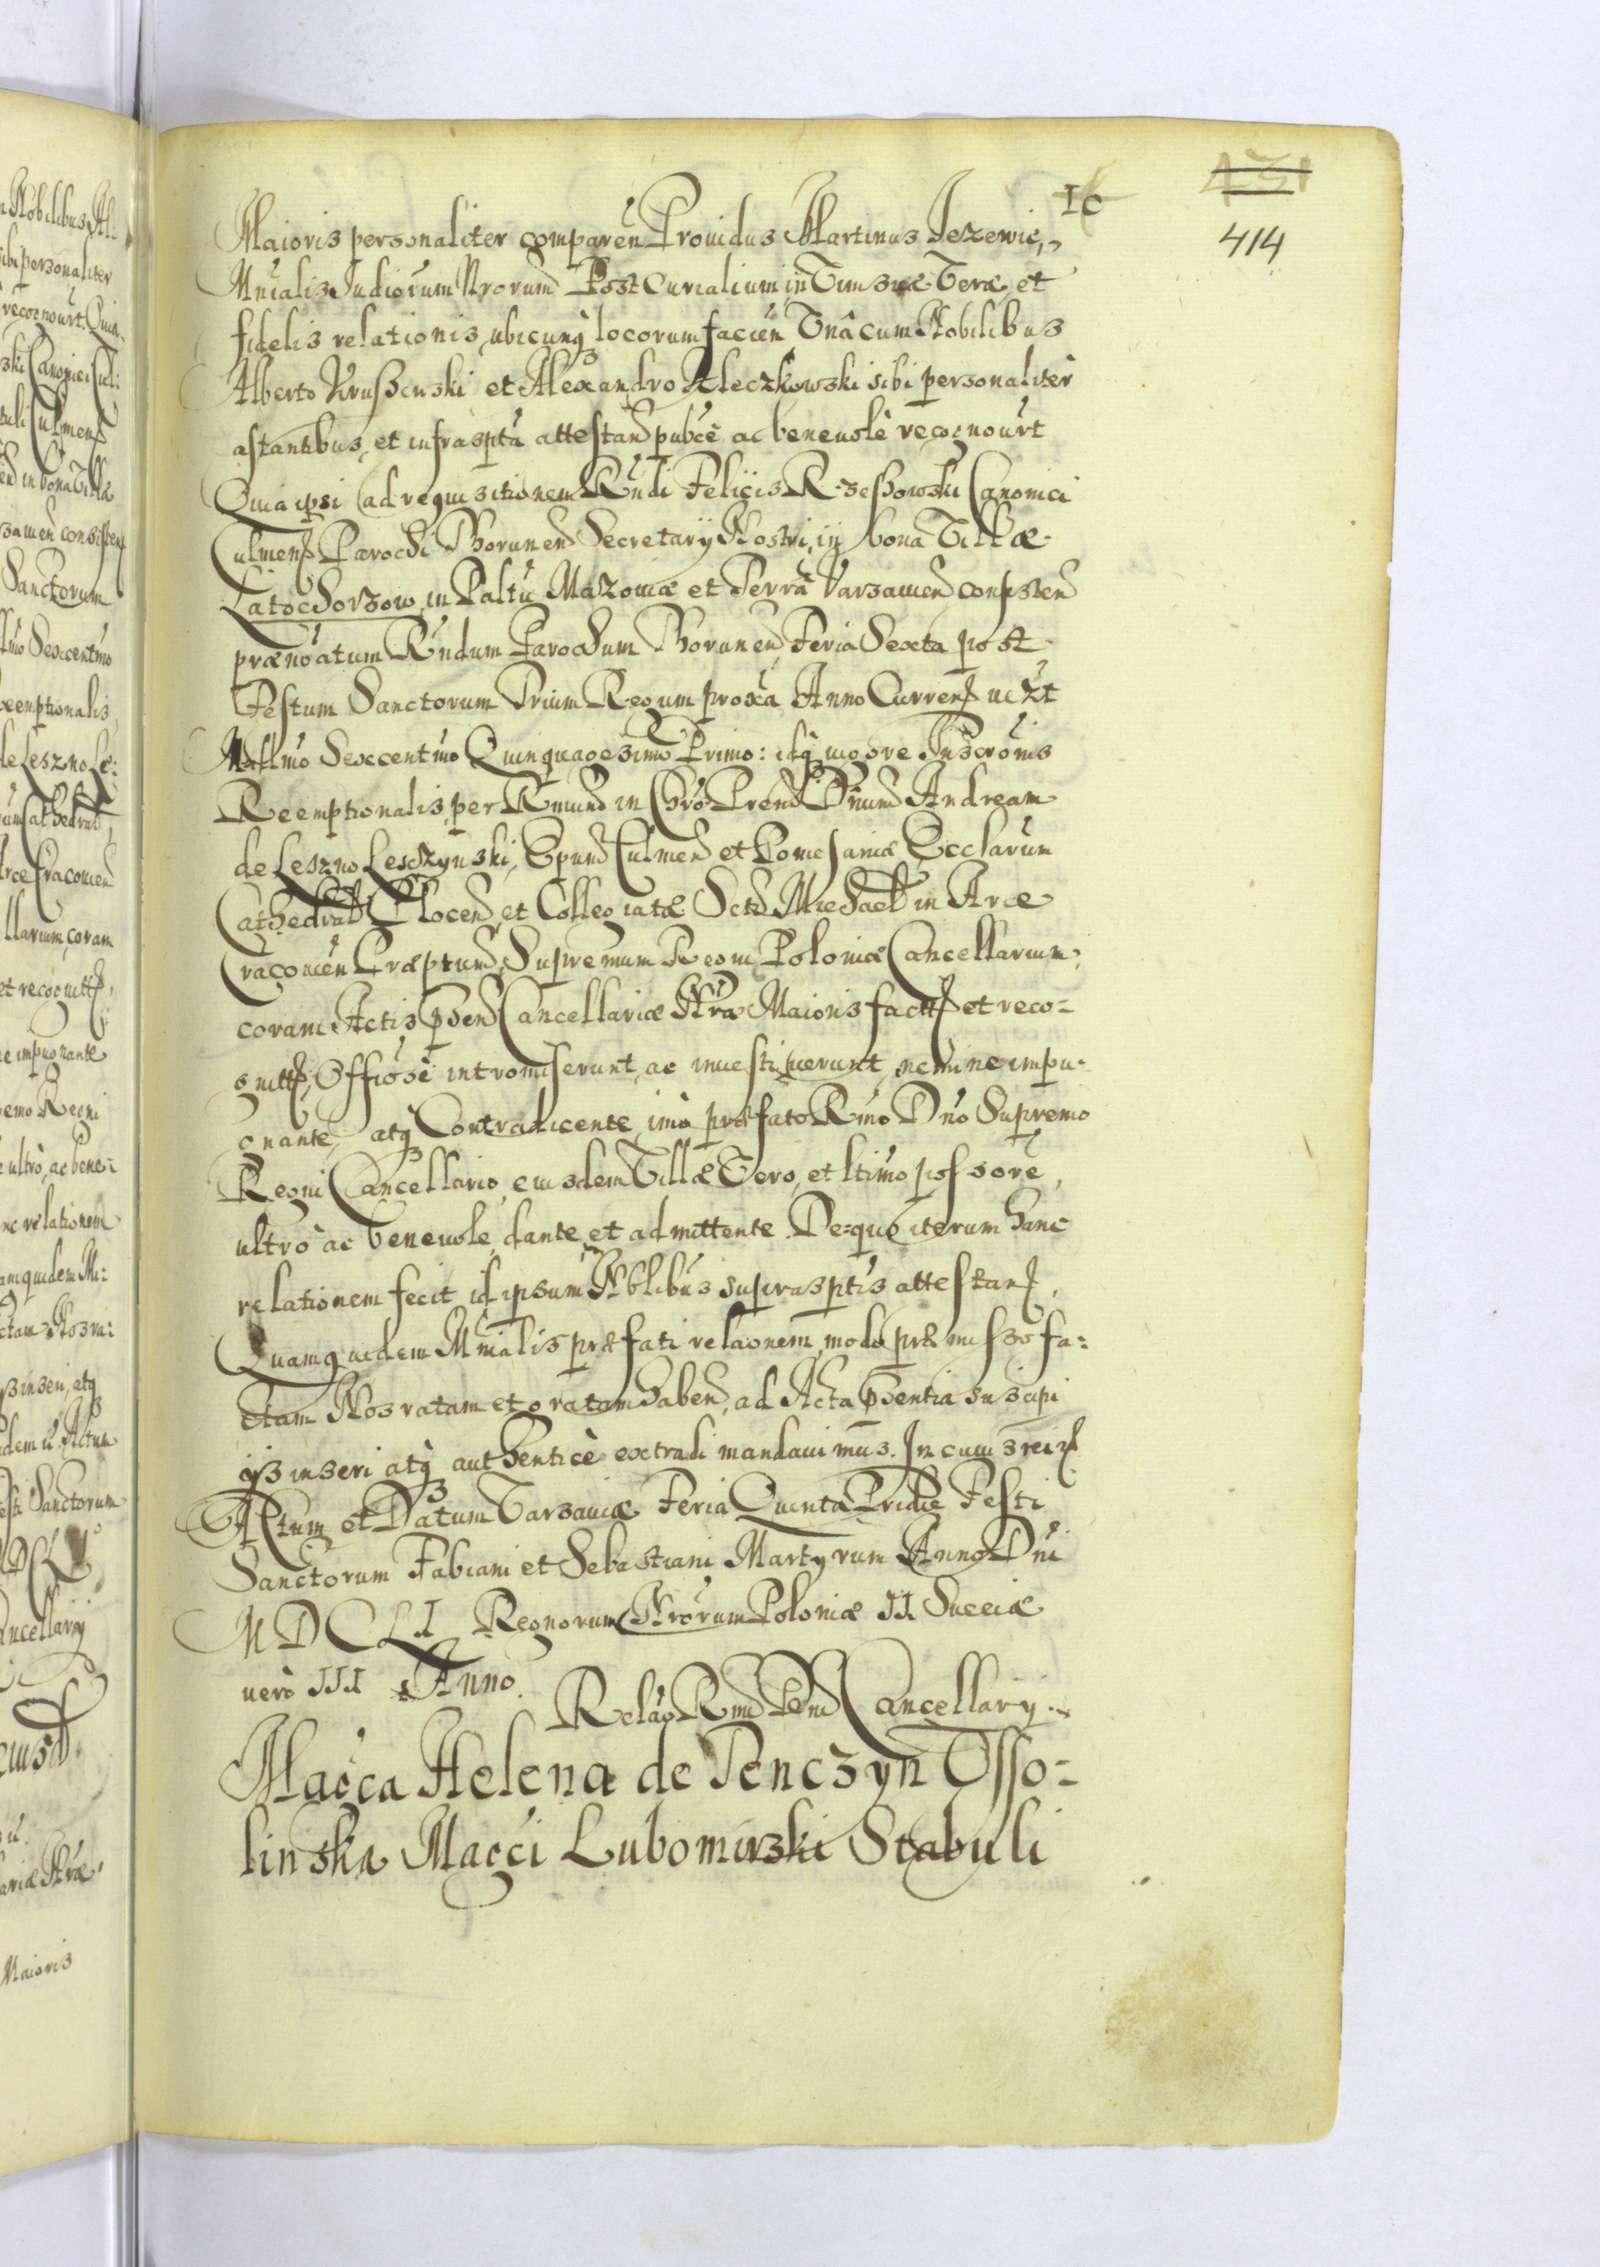 431
10
414
Maioris personaliter comparen Prouidus Martinus Jezewic,
Mnialis Judiorum Nrorum Post Curialium in Vim suæ Veræ, et
fidelis relationis ubicunq locorum facien Vnâ cum Nobilibus
Alberto Kruszenski et Alexandro Kleczkowski sibi personaliter
astantibus, et infrasptâ attestand pubcè ac beneuolè recognourt
Quia ipsi ad requisitionem Rndi Felicis Rzeszowski Canonici
Culmen Parochi Thorunen Secretarij Nostri, in bona Villæ
Latochorzow in Paltu Mazouiæ et Terrâ Varsauien consisten
prænoatum Rndum Parochum Thorunen Feria Sexta post
Festum Sanctorum Trium Regum proxa Anno Curren uczt
Mllmo Sexcentmo Quinquagesimo Primo: idq uigore Inscrōnis
Reemptionalis, per Rmum in Chro Prem Dnum Andream
de Leszno Lesczynski, Epum Culmen et Pomesaniæ Ecclarum
Cathedral Plocen, et Collegiatæ Scti Michael in Arce
Cracouien Præptum, Supremum Regni Poloniæ Cancellarium,
coram Actis psen Cancellariæ Nræ Maioris fact et reco=
gnit, Officosè intromiserunt, ac inuestiuerunt, nemine impu-
gnante, atq Contradicente, imò præfato Rmo Dno Supremo
Regni Cancellario, eiusdem Villæ Vero, et ltimo possore,
ultrò ac beneuolè, dante et admittente. De quo iterum hanc
relationem fecit id ipsum Nblibus suprasptis attestan,
Quamquidem Mnialis præfati relaonem, modo præmisso fa=
ctam Nos ratam et gratam haben, ad Acta psentia suscipi
ijs inseri atq authenticè extradi mandauimus. In cuius rei
Actum et Datum Varsauiæ Feria Quinta Pridie Festi
Sanctorum Fabiani et Sebastiani Martyrum Anno Dni
MDCLI Regnorum Nrorum Poloniæ II Sueciæ
uerò III Anno.
Relao Rmi Dni Cancellarij.
Macca Helena de Tenczyn Osso=
linska Macci Lubomirski Stabuli